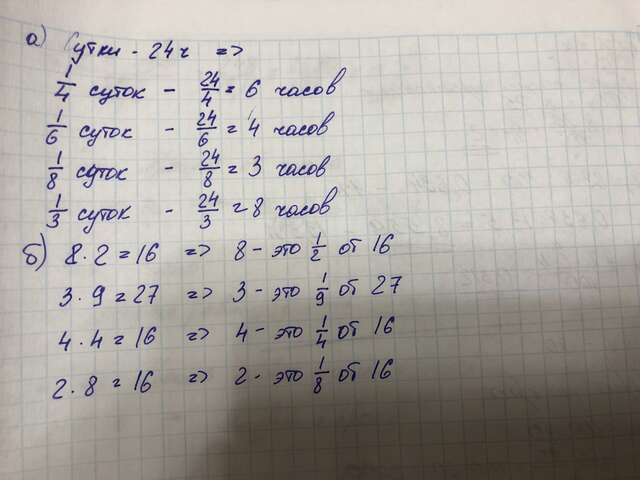 а) Сутки - 24ч =>
1/4 суток - 24/4 = 6 часов
1/6 суток - 24/6 = 4 часов
1/8 суток - 24/8 = 3 часов
1/3 суток - 24/3 = 8 часов
б) 8 · 2 = 16 => 8 - это 1/2 от 16
3 · 9 = 27 => 3 - это 1/9 от 27
4 · 4 = 16 => 4 - это 1/4 от 16
2 · 8 = 16 => 2 - это 1/8 от 16